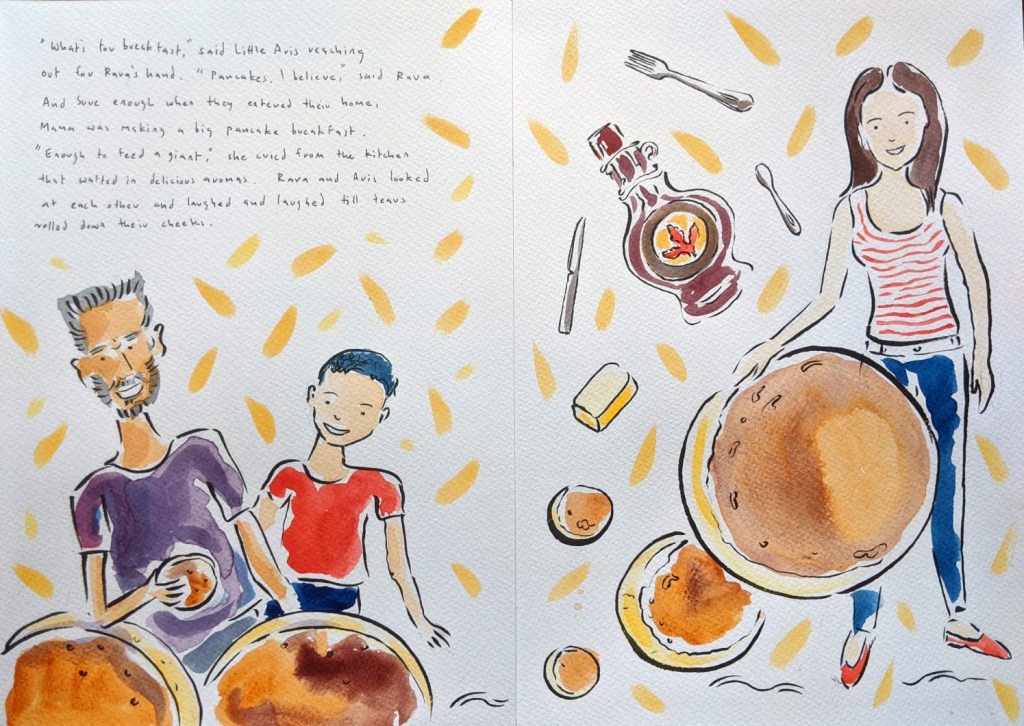 "What's for breakfast," said Little Avis reaching
out for Rava's hand. "Pancakes, I believe," said Rava.
And sure enough when they entered their home,
Mama was making a big pancake breakfast.
"Enough to feed a giant," she cried from the kitchen
that wafted in delicious aromas. Rava and Avis looked
at each other and laughed and laughed till tears
rolled down their cheeks.